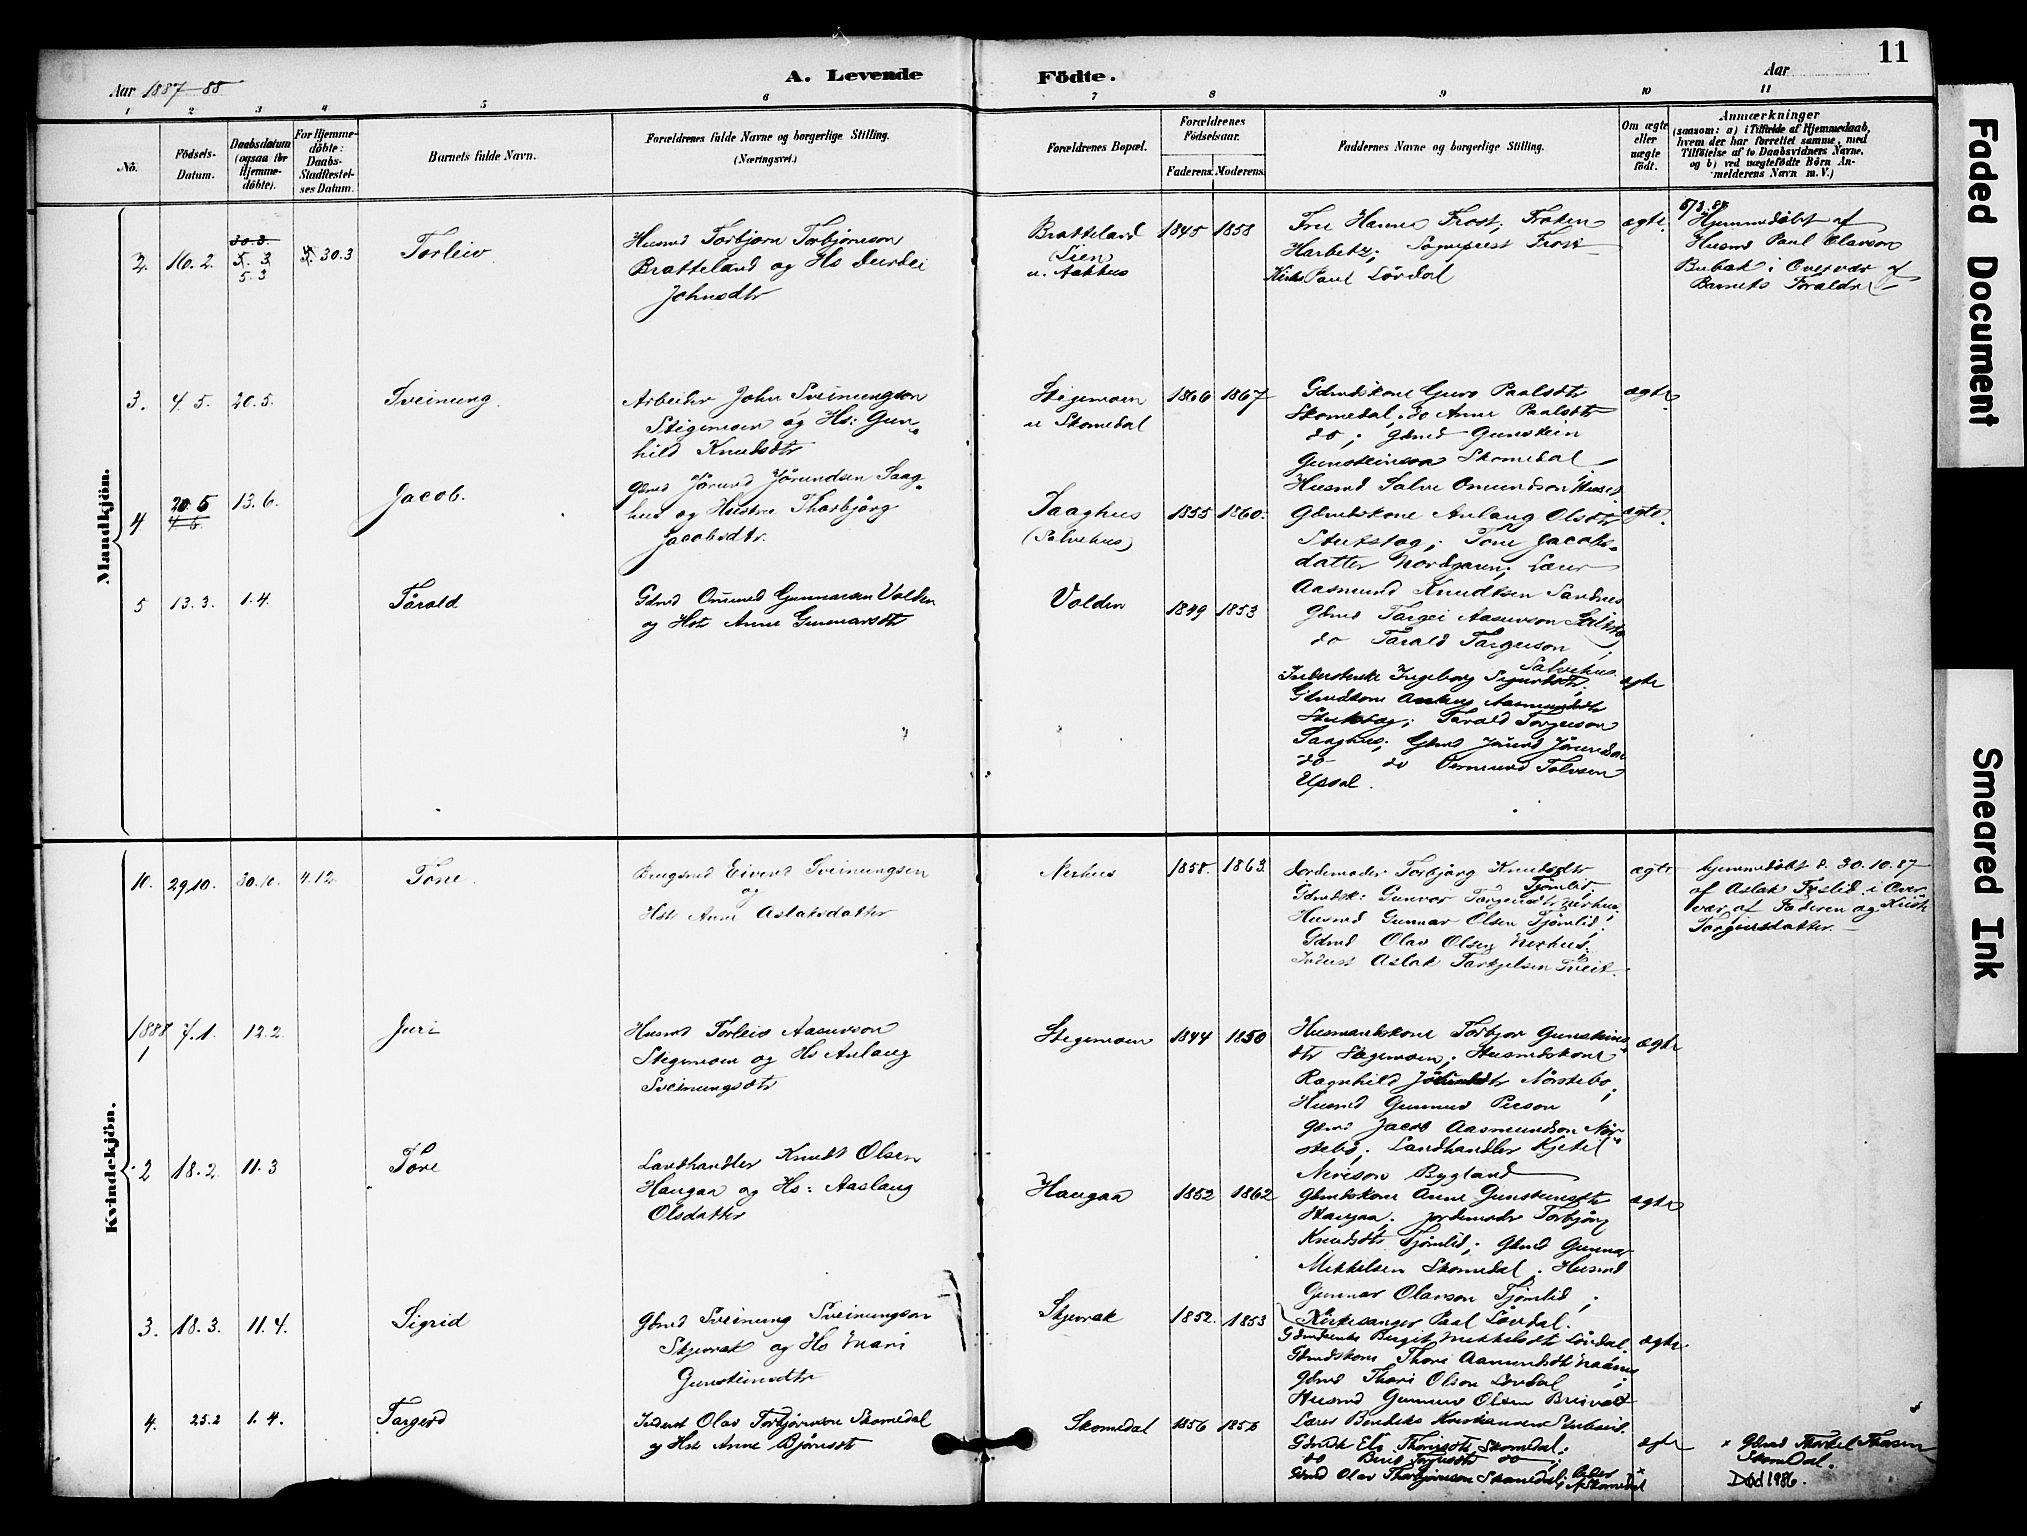 11
Aar 1887-88
A. Levende Födte.
Aar
1 2 3 4 5 6 7 8 9 10 11
No.
Födsels-Datum.
Daabsdatum (ogsaa for Hjemme-döbte).
For Hjemme-döbte: Daabs-Stadfæstel-ses Datum.
Barnets fulde Navn.
Forældrenes fulde Navne og borgerlige Stilling.
(Næringsvei.)
Forældrenes Bopæl.
Forældrenes Födselsaar.
Faderens. Moderens.
Faddernes Navne og borgerlige Stilling.
Om ægte eller uægte födt.
Anmærkninger
(saasom: a) i Tilfælde af Hjemmedaab,
hvem der har forrettet samme, med
Tilföielse af to Daabsvidners Navne,
og b) ved uægtefödte Börn An-
melderens Navn m. V.)
Mandkjön.
2. 16.2. 30.3. 5.3 5.3 30.3 Torleiv
Husmd Torbjørn Torbjørnson
Bratteland og Hs
Johnsdtr
Bratteland
(Lien)
u. Aakhus
1845 1858
Fru Hanna Frost; Frøken
Harbitz; Sogneprest Frost
Kirks Paul Lövdal
ægte
5/3.88
Hjemmedøbt af
Husmd Paul Olavson
Bubak i Overvær af
Barnets Forældre
3. 4.5. 20.5. Sveinung.
Arbeider John Sveinungson
Stigemoen og Hs: Gun-
hild Knudsdtr
Stigemoen
u Skomedal
1866 1867
Gdmdskone Guro Paalsdtr
Skomedal, do Anne Paalsdtr
do; Gdmd Gunstein
Gunsteinson Skomedal
Husmd Salve Omundson
ægte
4 20.5 4.6 13.6. Jacob.
Gdmd Jörund Jörundsen Saag-
hus og Hustru Thorbjörg
Jacobsdtr.
Saaghus
(Salvehus)
1855 1860.
Gdmdskone Anlaug Olsdtr
Stutstog; Tone Jacobs-
datter Nordgaren; Lærer
Aasmund Knudtsen Sandnes
Gdmd Targei Aasuvson
do Tarald Targeison
Salvehus
ægte
5 13.3. 1.4. Tarald
Gdmd Omund Gunnarsen Valden
og Hst Anne Gunnarsdtr
Valden
1849 1853
Inderstenke Ingeborg Sigurdsdtr.
Gdmdskone Aaslaug Aasmundsdtr
Stutstog; Tarald Torgeison
Saaghus; Gdmd Jörund Jörundson
do do Osmund Tolvsen
Updal.
ægte
Kvindekjön.
10. 29.10. 30.10. 4.12. Tone.
Brugsmd Eivind Sveinungsen
og
Hst Anne Aslaksdatter
Nerhus
1858. 1863.
Jordemoder Torbjörg Knudsdtr
Tjömlid;
Gdmdsk: Gunvor Targeisdtr Nerhus;
Husmd Gunnar Olsen Tjömlid;
Gdmd Olav Olsen Nerhus;
Inderst Aslak Tarkjelsen Tveit.
ægte
hjemmedøbt d. 30.10.87
af Aslak Fyslid i Over-
vær af Faderen og
Torgeirsdatter.
1888
1 7.1. 12.2. Juri
Husmd Torleiv Aasuvson
Stigemoen og Hs Anlaug
Sveinungsdtr
Stigemoen
1844 1850
Husmandskone Torbjør Gunsteins-
dtr Stigemoen; Husmdskone
Ragnhild Nørstebø;
Husmd Gunnund Person
Gdmd Jacob Aasmundson Nør-
stebø; Landhandler Kjetil
Neveson Bygland
ægte
2 18.2. 11.3 Tone
Landhandler Knudt Olsen
Haugaa og Hs: Aaslaug
Olsdatter
Haugaa
1852 1862
Gdmdskone Anne Gunsteinsdtr
Haugaa; Jordemoder Torbjörg
Knudsdtr Tjömlid; Gdmd Gunnar
Mikkelsen Skomedal; Husmd
Gunnar Olavson Tjömlid;
Kirkesanger Paal Lövdal.
ægte
3. 18.3. 11.4. Sigrid
Gdmd Sveinung Sveinungson
Skjevrak og Hs Mari
Gunsteinsdtr
Skjevrak
1852. 1853
Gdmdsenke Birgit Mikkelsdtr Lövdal.
Gdmdskone Thore Aamundsdt
Gdmd Thore Olson Lövdal;
Husmd Gunnuv Olsen Breivat
Lærer Bendiks Kristiansen
ægte
4. 25.2 1.4. Targerd
Inderst Olav Torbjørnson Skomedal
og Hst Anne Bjørnsdt
Skomedal
1856 1856
Gdmdk Else Thorisdtr Skomedal;
do do;
Gdmd Olav Thorbjørnsen Skomedal; Peder
Skomedal
ægte
x Gdmd Thorkel
Skomdal.
Död 1986.
Faded Document
Smeared Ink